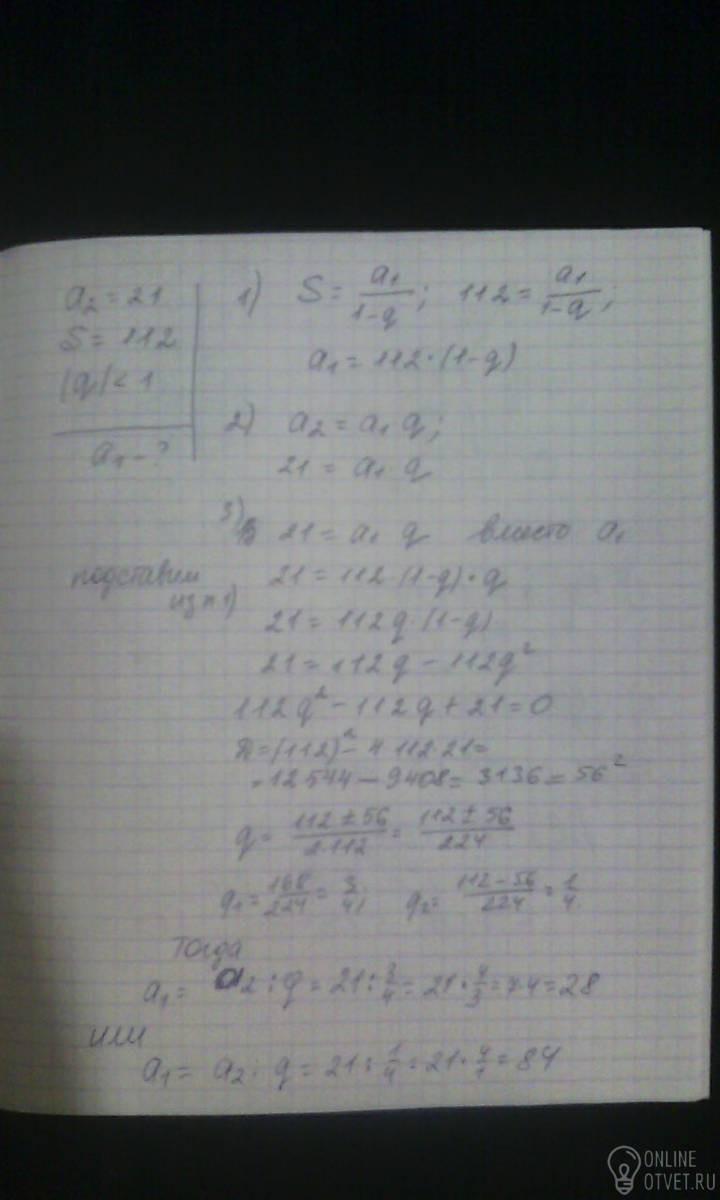 a₂ = 21
S = 112
|q| < 1
a₁ - ?
1) S = a₁/(1-q); 112 = a₁/(1-q);
a₁ = 112 · (1-q)
2) a₂ = a₁ q;
21 = a₁ q
3) В 21 = a₁ q вместо a₁
подставим из п 1)
21 = 112 · (1-q) · q
21 = 112q · (1-q)
21 = 112q - 112q²
112q² - 112q + 21 = 0
D = (112)² - 4 · 112 · 21 =
= 12544 - 9408 = 3136 = 56²
q = (112 ± 56)/(2·112) = (112 ± 56)/224
q₁ = 168/224 = 3/4; q₂ = (112-56)/224 = 1/4
Тогда
a₁ = a₂ : q = 21 : 3/4 = 21 · 4/3 = 7·4 = 28
или
a₁ = a₂ : q = 21 : 1/4 = 21 · 4/1 = 84
ONLINE
OTVET.RU